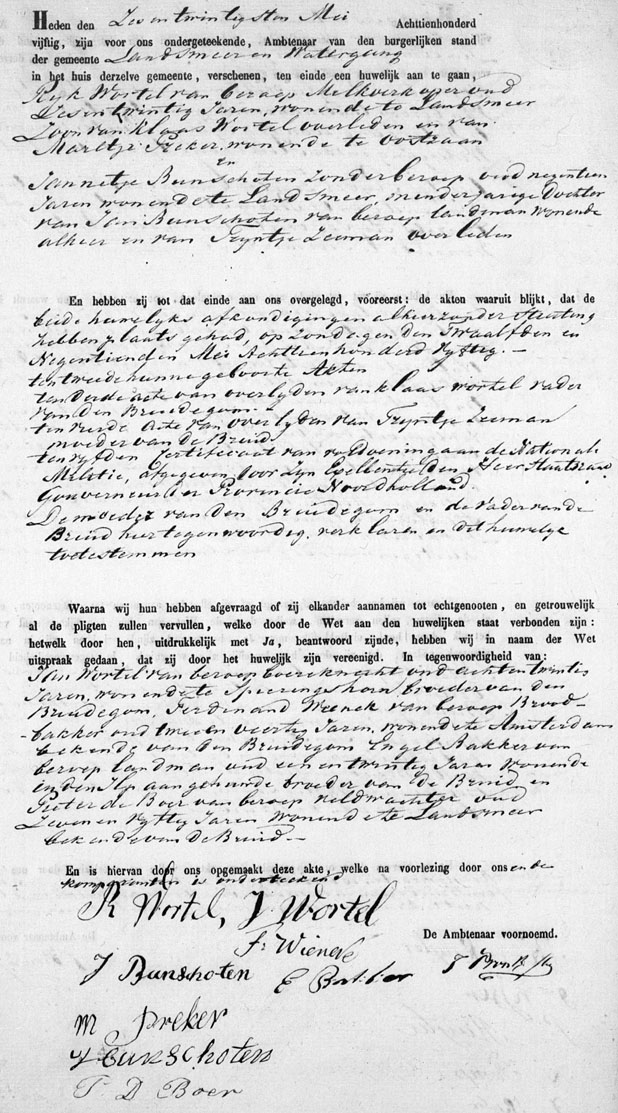 Heden den Zesentwintigsten Mei Achttienhonderd
vijftig, zijn voor ons ondergeteekende, Ambtenaar van den burgerlijken stand
der gemeente Landsmeer en Watergang
in het huis derzelve gemeente, verschenen, ten einde een huwelijk aan te gaan,
Ryk Wortel van beroep Melkverkoper oud
Zesentwintig Jaren, wonende te Landsmeer
Zoon van Klaas Wortel overleden en van
Maretje Preker, wonende te Oostzaan
en
Jannetje Bunschoten zonder beroep oud negentien
Jaren wonende te Landsmeer, minderjarige Dochter
van Jan Bunschoten van beroep landman wonende
alhier en van Tryntje Zeeman overleden
En hebben zij tot dat einde aan ons overgelegd, vooreerst: de akten waaruit blijkt, dat de
beide huwelyks afkondigingen alhier zonder Stuiting
hebben plaats gehad, op Zondagen den Twaalfden en
Negentienden Mei Achttienhonderd Vyftig. —
ten tweede hunne geboorte Akten
ten derde acte van overlyden van Klaas Wortel vader
van den Bruidegom.
ten vierde Acte van overlyden van Tryntje Zeeman
moeder van de Bruid
ten vyfden Certificaat van voldoening aan de Nationale
Militie, afgegeven door Zyn Excellentie den Heer Staatsraad
Gouverneur der Provincie Noordholland
De moeder van den Bruidegom en de vader van de
Bruid hier tegenwoordig, verklaren in dit huwelyk
toetestemmen
Waarna wij hun hebben afgevraagd of zij elkander aannamen tot echtgenooten, en getrouwelijk
al de pligten zullen vervullen, welke door de Wet aan den huwelijken staat verbonden zijn:
hetwelk door hen, uitdrukkelijk met Ja, beantwoord zijnde, hebben wij in naam der Wet
uitspraak gedaan, dat zij door het huwelijk zijn vereenigd. In tegenwoordigheid van:
Jan Wortel van beroep boereknecht oud achtentwintig
Jaren, wonende te Spieringshorn broeder van den
Bruidegom, Ferdinand Wienek van beroep Brood-
-bakker oud twee en veertig Jaren, wonende te Amsterdam
bekende van den Bruidegom Engel Bakker van
beroep landman oud een en twintig Jaren wonende
aangehuwde broeder van de Bruid en
Pieter de Boer van beroep veldwachter oud
Zeven en vyftig Jaren wonende te Landsmeer
bekende van de Bruid. —
En is hiervan door ons opgemaakt deze akte, welke na voorlezing door ons en de
komparanten is onderteekend
R Wortel, J Wortel
De Ambtenaar voornoemd.
F. Wieneke
J Bunschoten E Bakker
M Preker
J Bunschoten
P D Boer